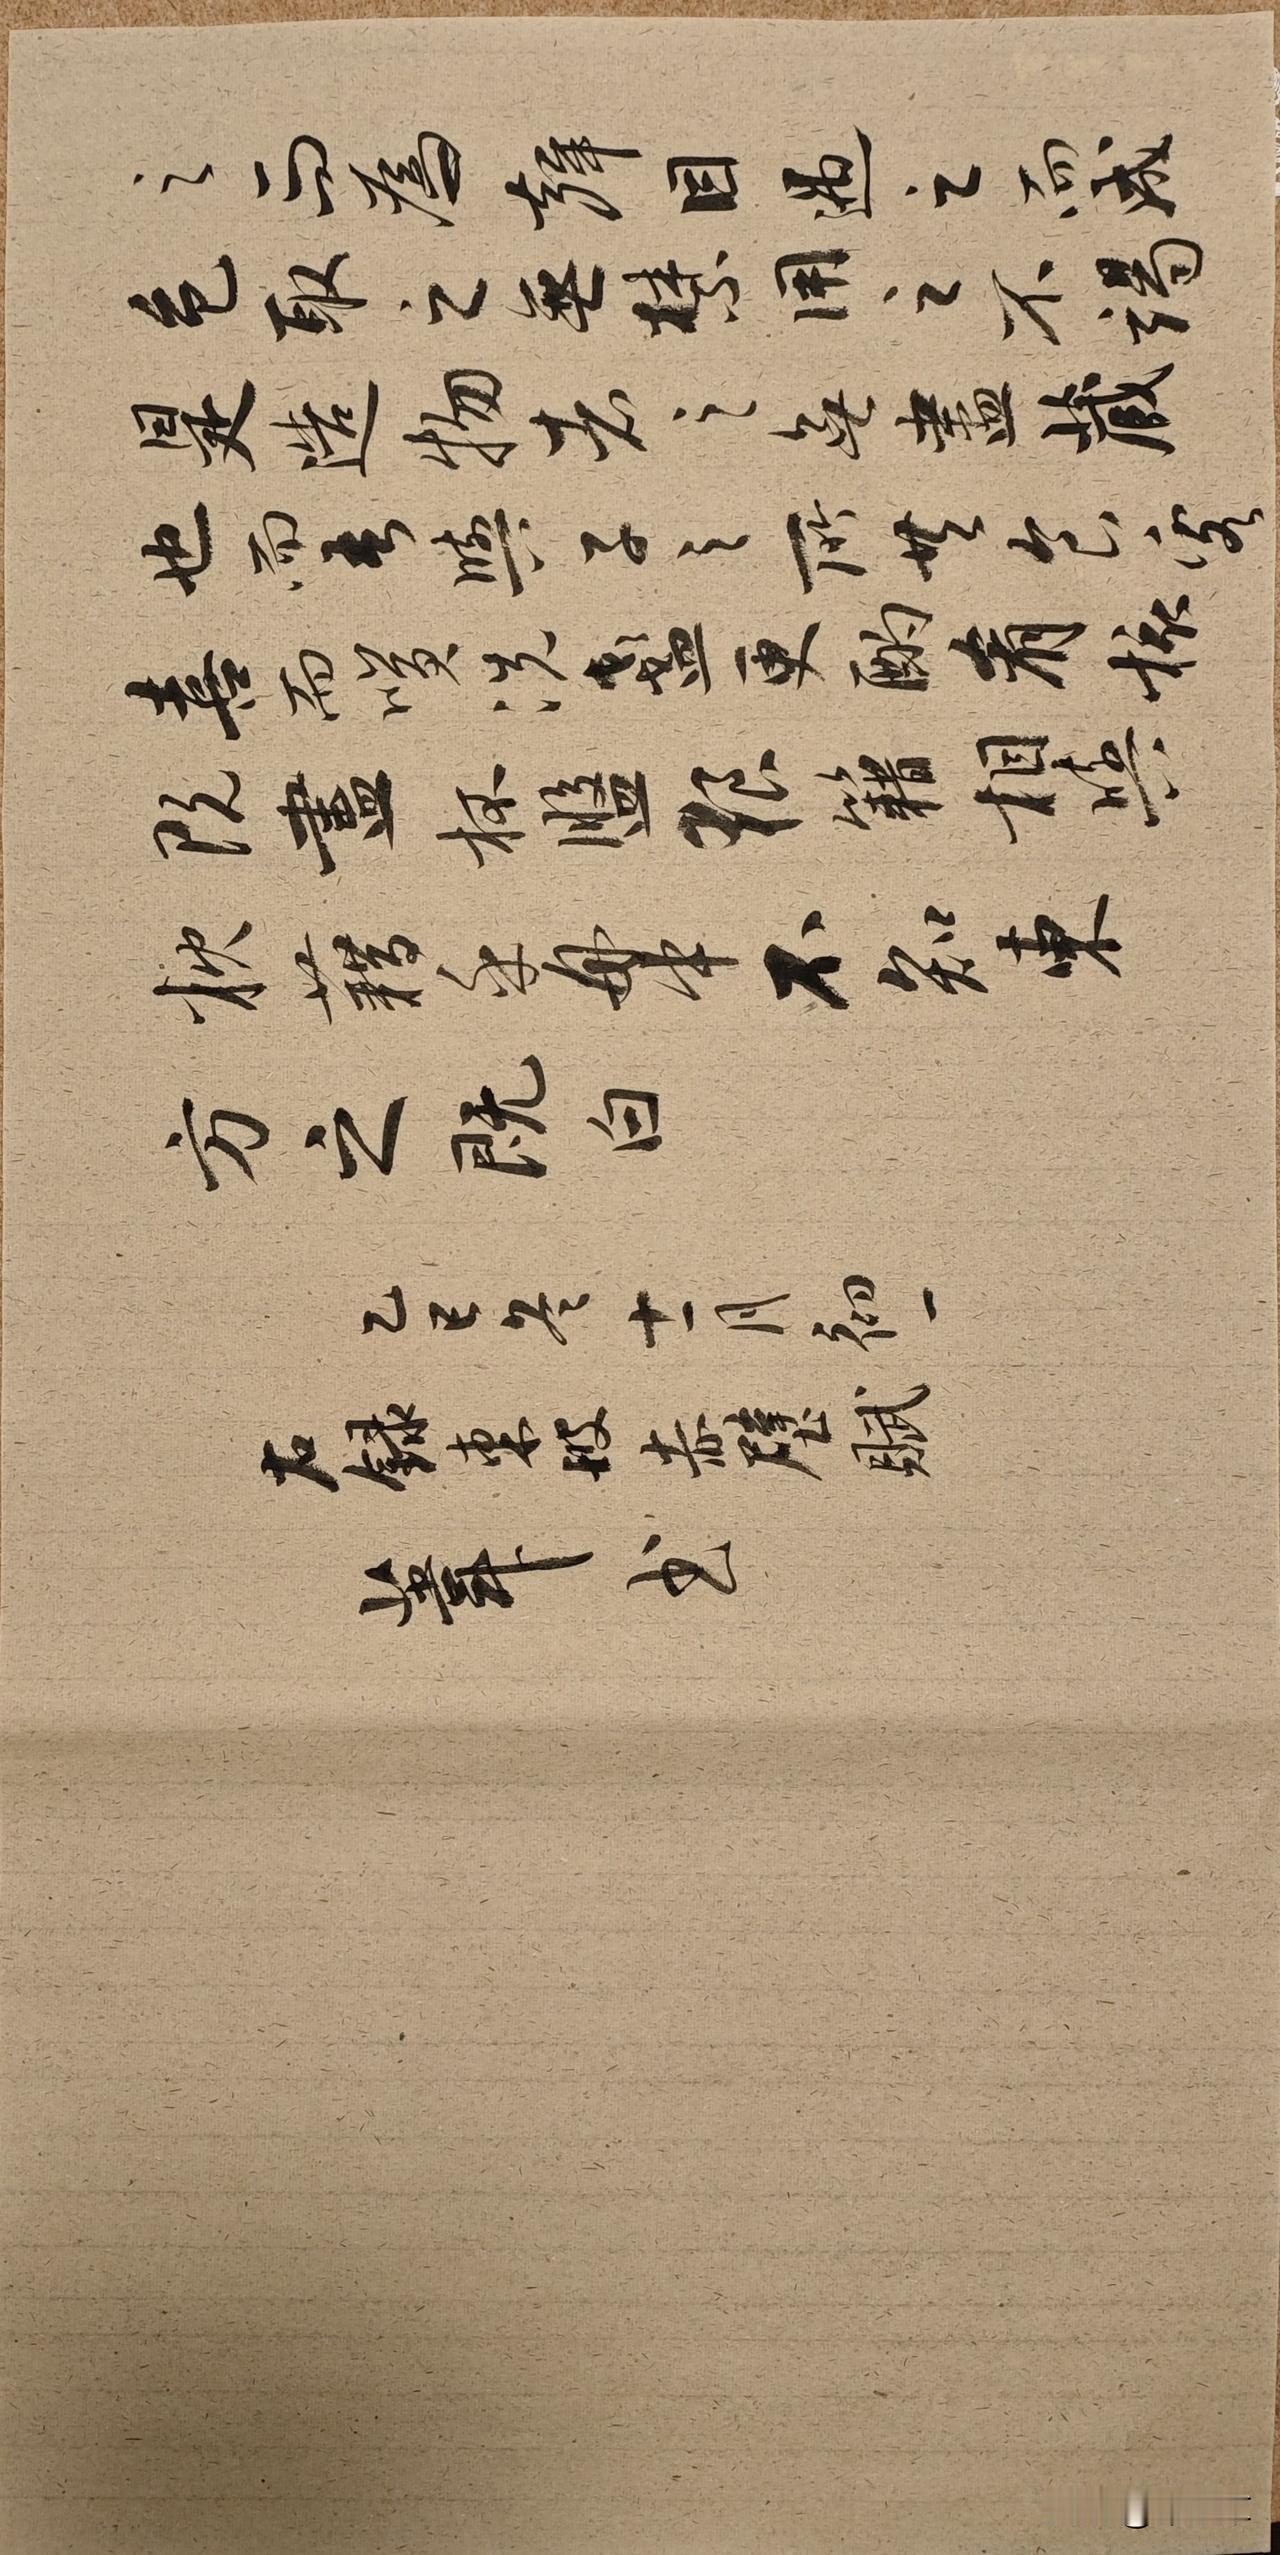 之而為聲目遇之而成
色取之無禁用之不竭
是造物者之無盡藏
也而吾與子之所共食客
喜而笑洗盞更酌肴核
既盡杯盤狼籍相與
枕藉乎舟中不知東
方之既白
乙巳冬十一月初一
右錄東坡赤壁賦
書